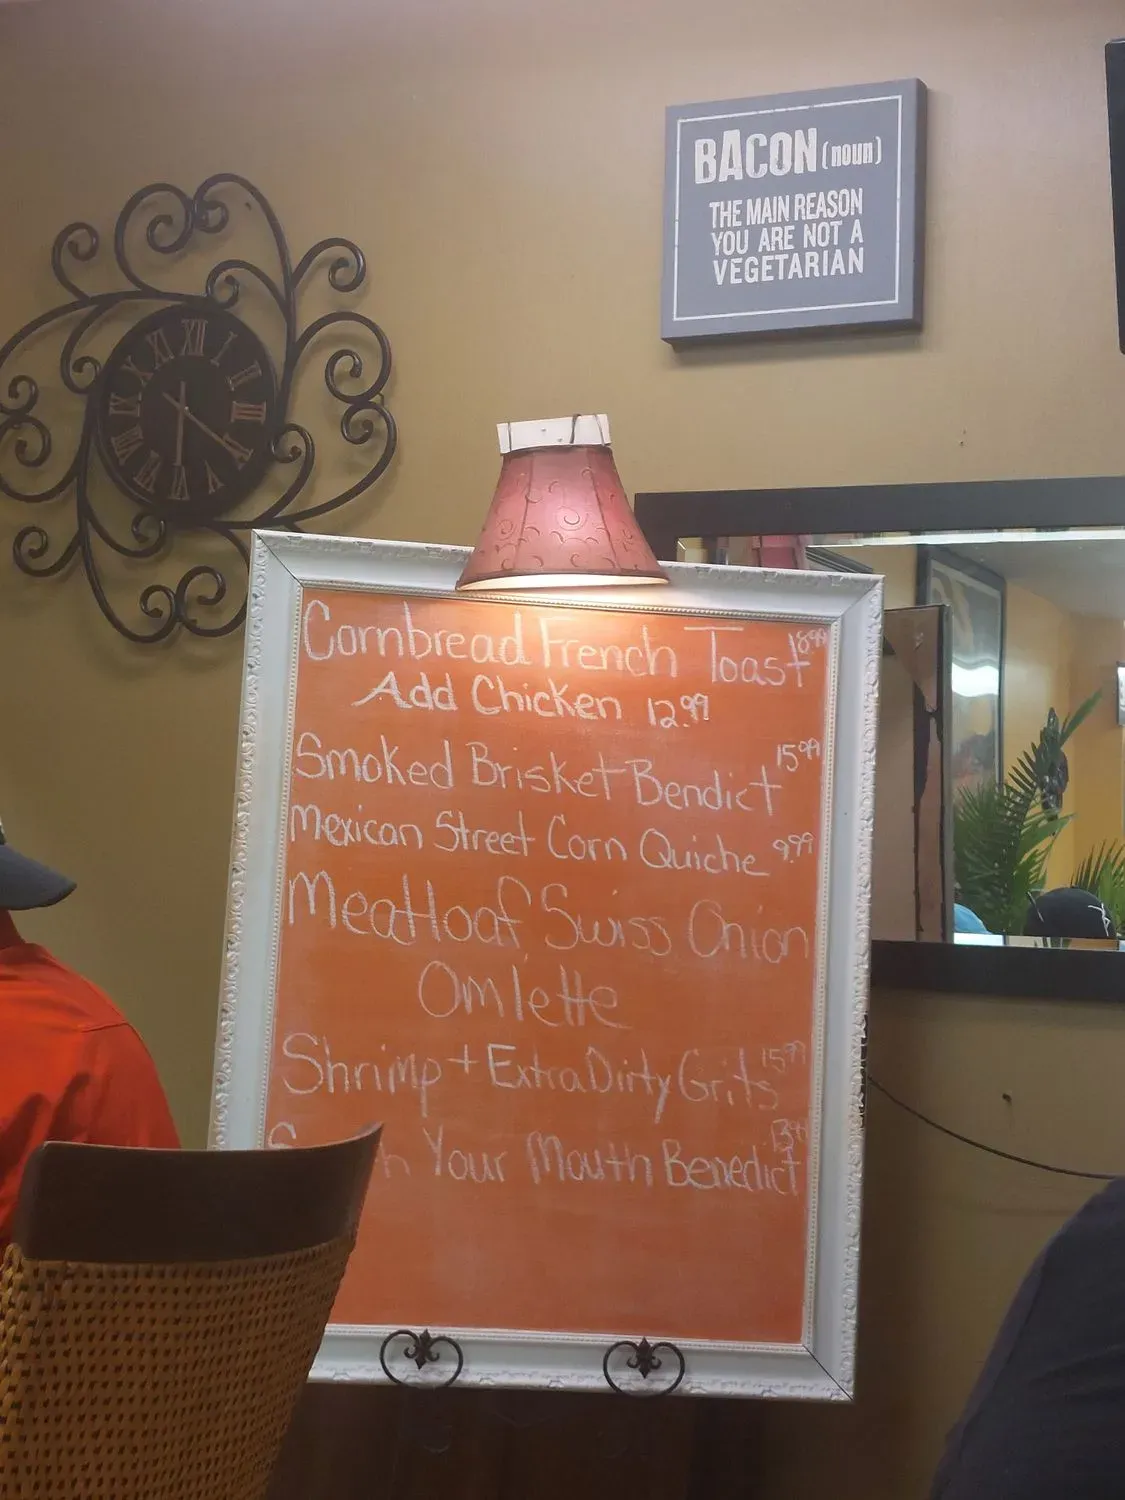 BACON (noun)
THE MAIN REASON
YOU ARE NOT A
VEGETARIAN
XII
I
II
III
IV
V
VI
VII
VIII
IX
X
XI
Cornbread French Toast
Add Chicken 12.99
Smoked Brisket Bendict 15.99
Mexican Street Corn Quiche 9.99
Meatloaf Swiss Onion
Omlette
Shrimp + Extra Dirty Grits 15.99
Your Mouth Benedict